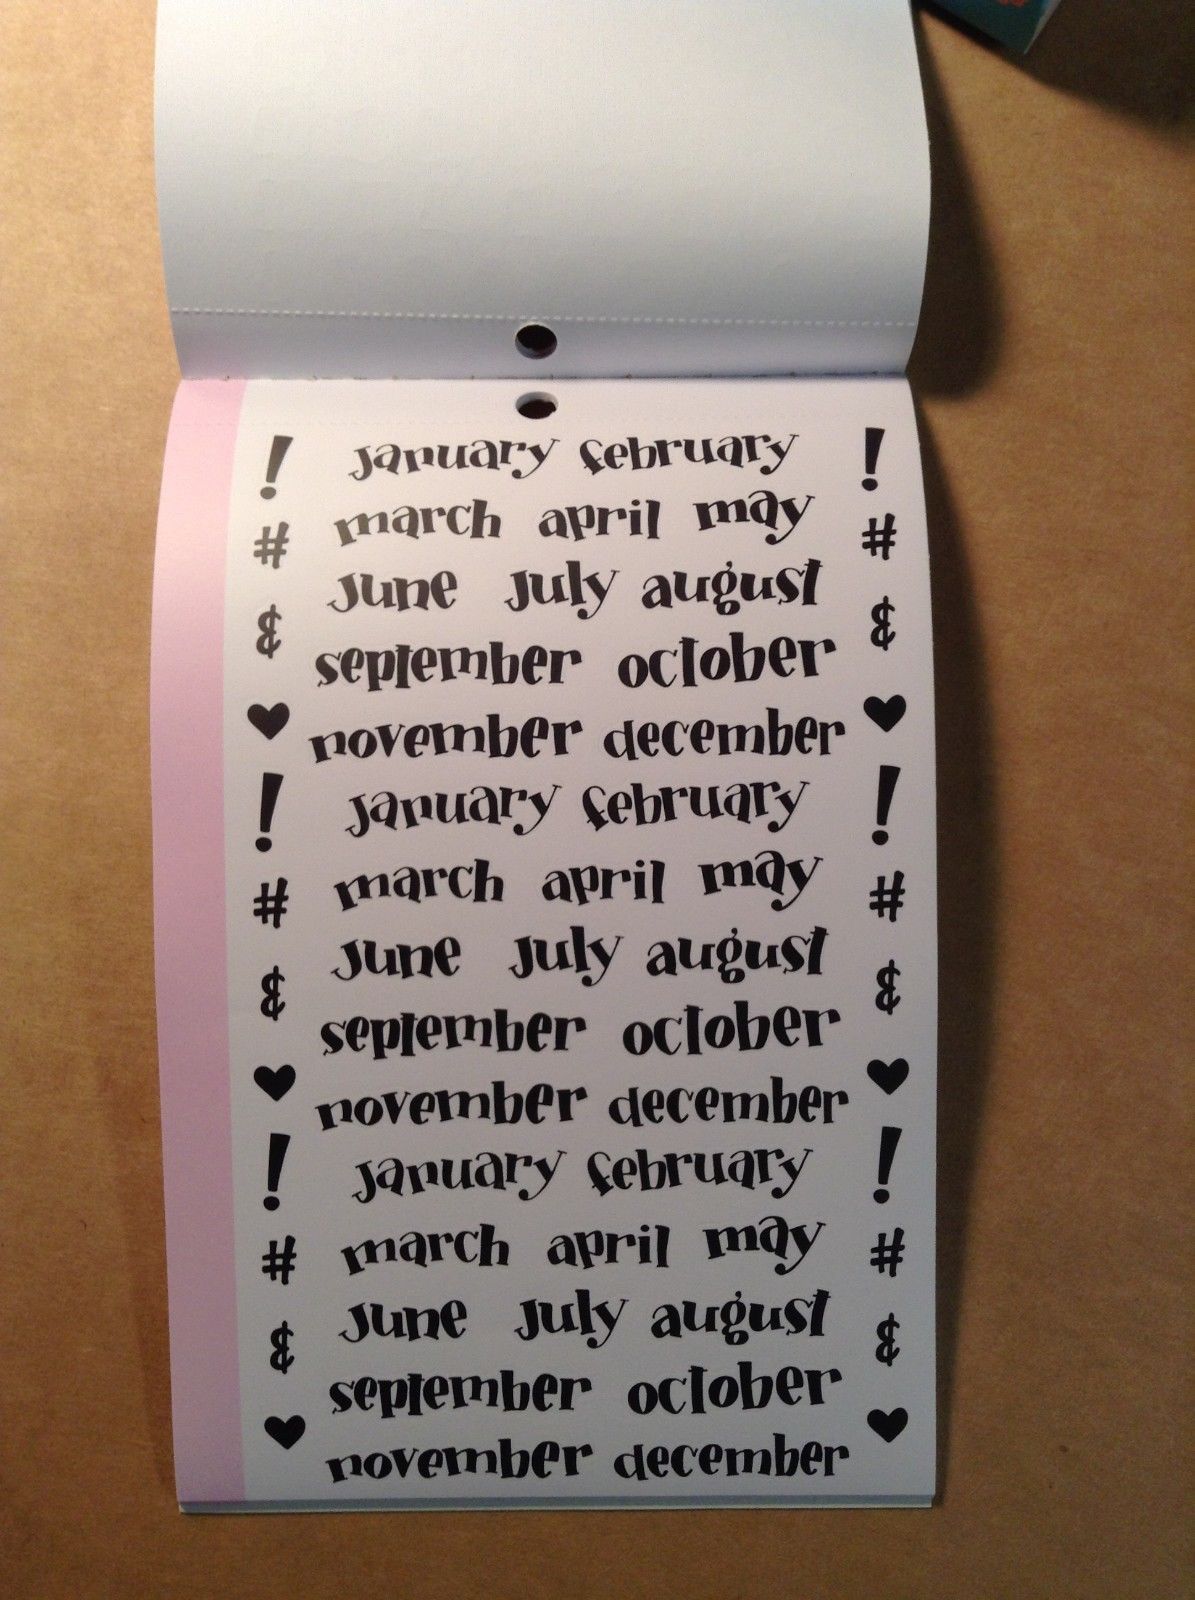 ! january february !
# march april may #
& june july august &
september october
♥ november december ♥
! january february !
# march april may #
& june july august &
september october
♥ november december ♥
! january february !
# march april may #
& june july august &
september october
♥ november december ♥